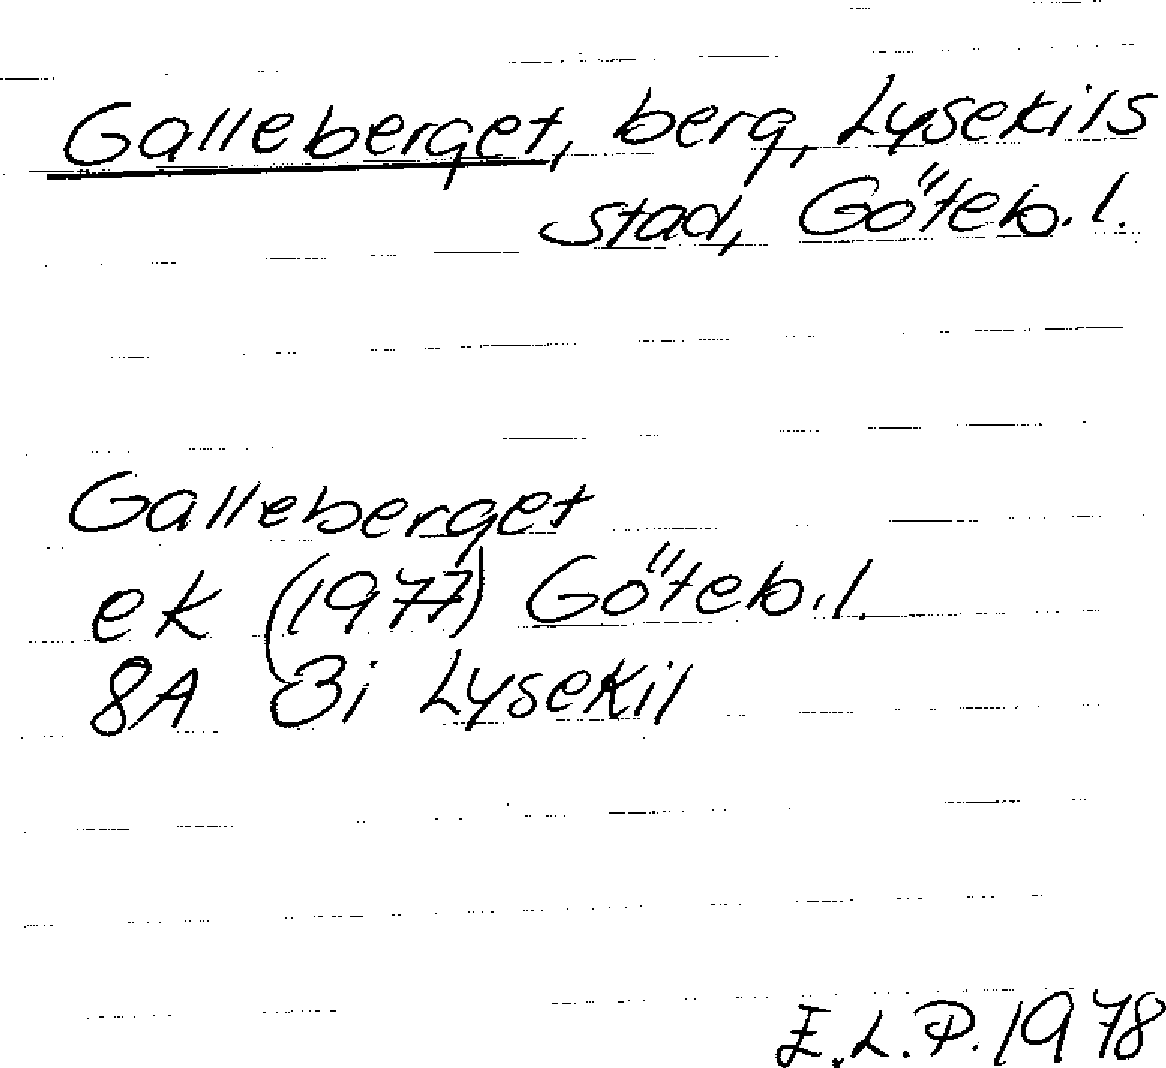 Galleberget, berg, Lysekils
stad, Göteb. l.
Galleberget
ek (1977) Göteb. l.
8A 3i Lysekil
E.L.P. 1978